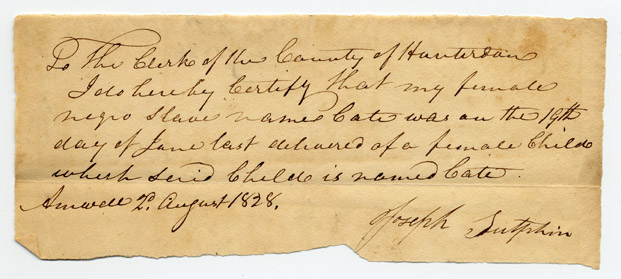 To The Clerk of the County of Hunterdon
I do hereby Certify that my female
negro slave named Cate was on the 19th
day of June last delivered of a female Child
which said Child is named Cate.
Amwell 2d. August 1828.
Joseph Sutphin